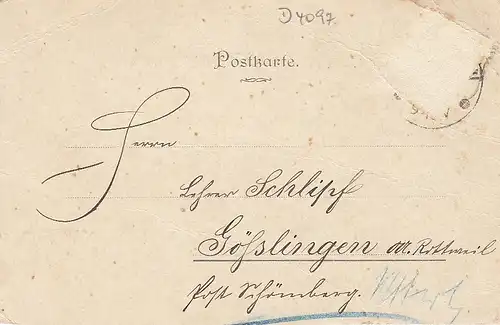 D4097
Postkarte.
Herrn
Lehrer Schlipf
Gößlingen OA. Rottweil
Post Schömberg.